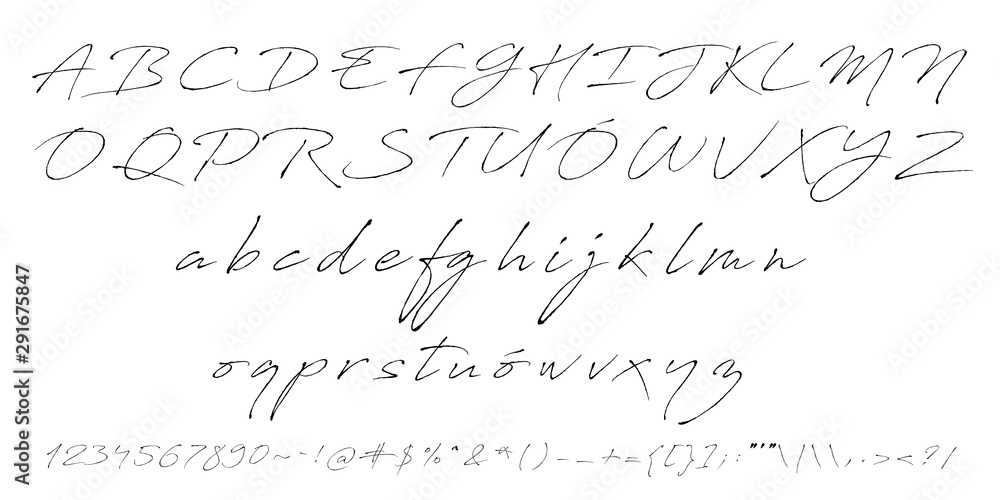 A B C D E F G H I J K L M N
O Q P R S T U Ó W V X Y Z
a b c d e f g h i j k l m n
o q p r s t u ó w v x y z
1234567890~-!@#$%^&*()-_+={[}];:"'"\|\\,.><?/
Adobe Stock | #291675847